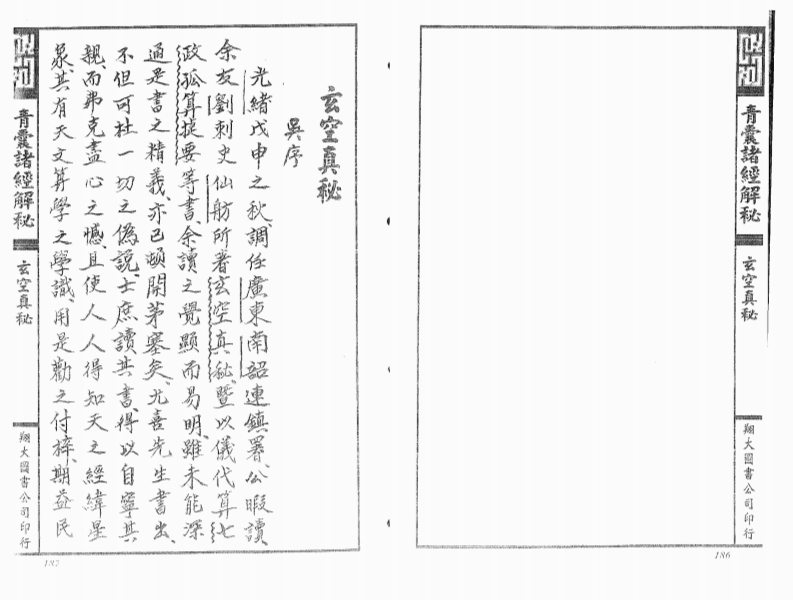 青囊諸經解秘
玄空真秘
翔大圖書公司印行
186
玄空真秘
吳序
光緒戊申之秋、調任廣東南韶連鎮署、公暇讀
余友劉刺史仙舫所著玄空真秘、暨以儀代算七
政孤算捉要等書、余讀之覺顯而易明、雖未能深
通是書之精義、亦已頓開茅塞矣、尤喜先生書出、
不但可杜一切之偽說、士庶讀其書、得以自寧其
親、而弗克盡心之憾、且使人人得知天之經緯星
象、其有天文算學之學識、用是勸之付梓、期益民
青囊諸經解秘
玄空真秘
翔大圖書公司印行
187